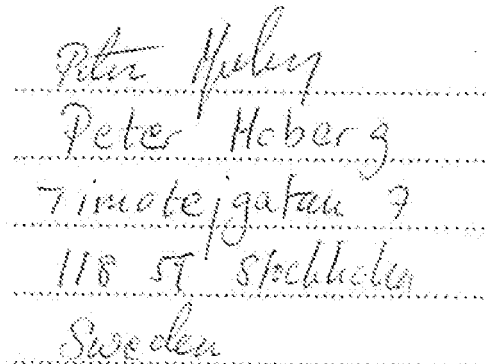 Peter
Peter Moberg
Timotejgatan 7
118 59 Stockholm
Sweden